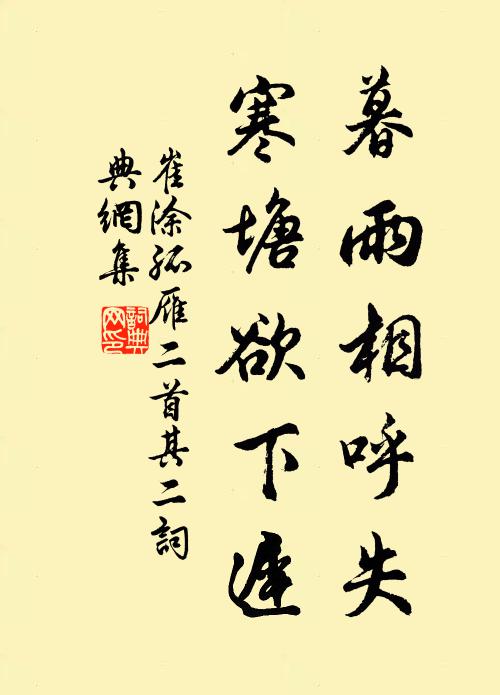 暮雨相呼失
寒塘欲下遲
崔涂孤雁二首其二詞
典網集
詞典
网印